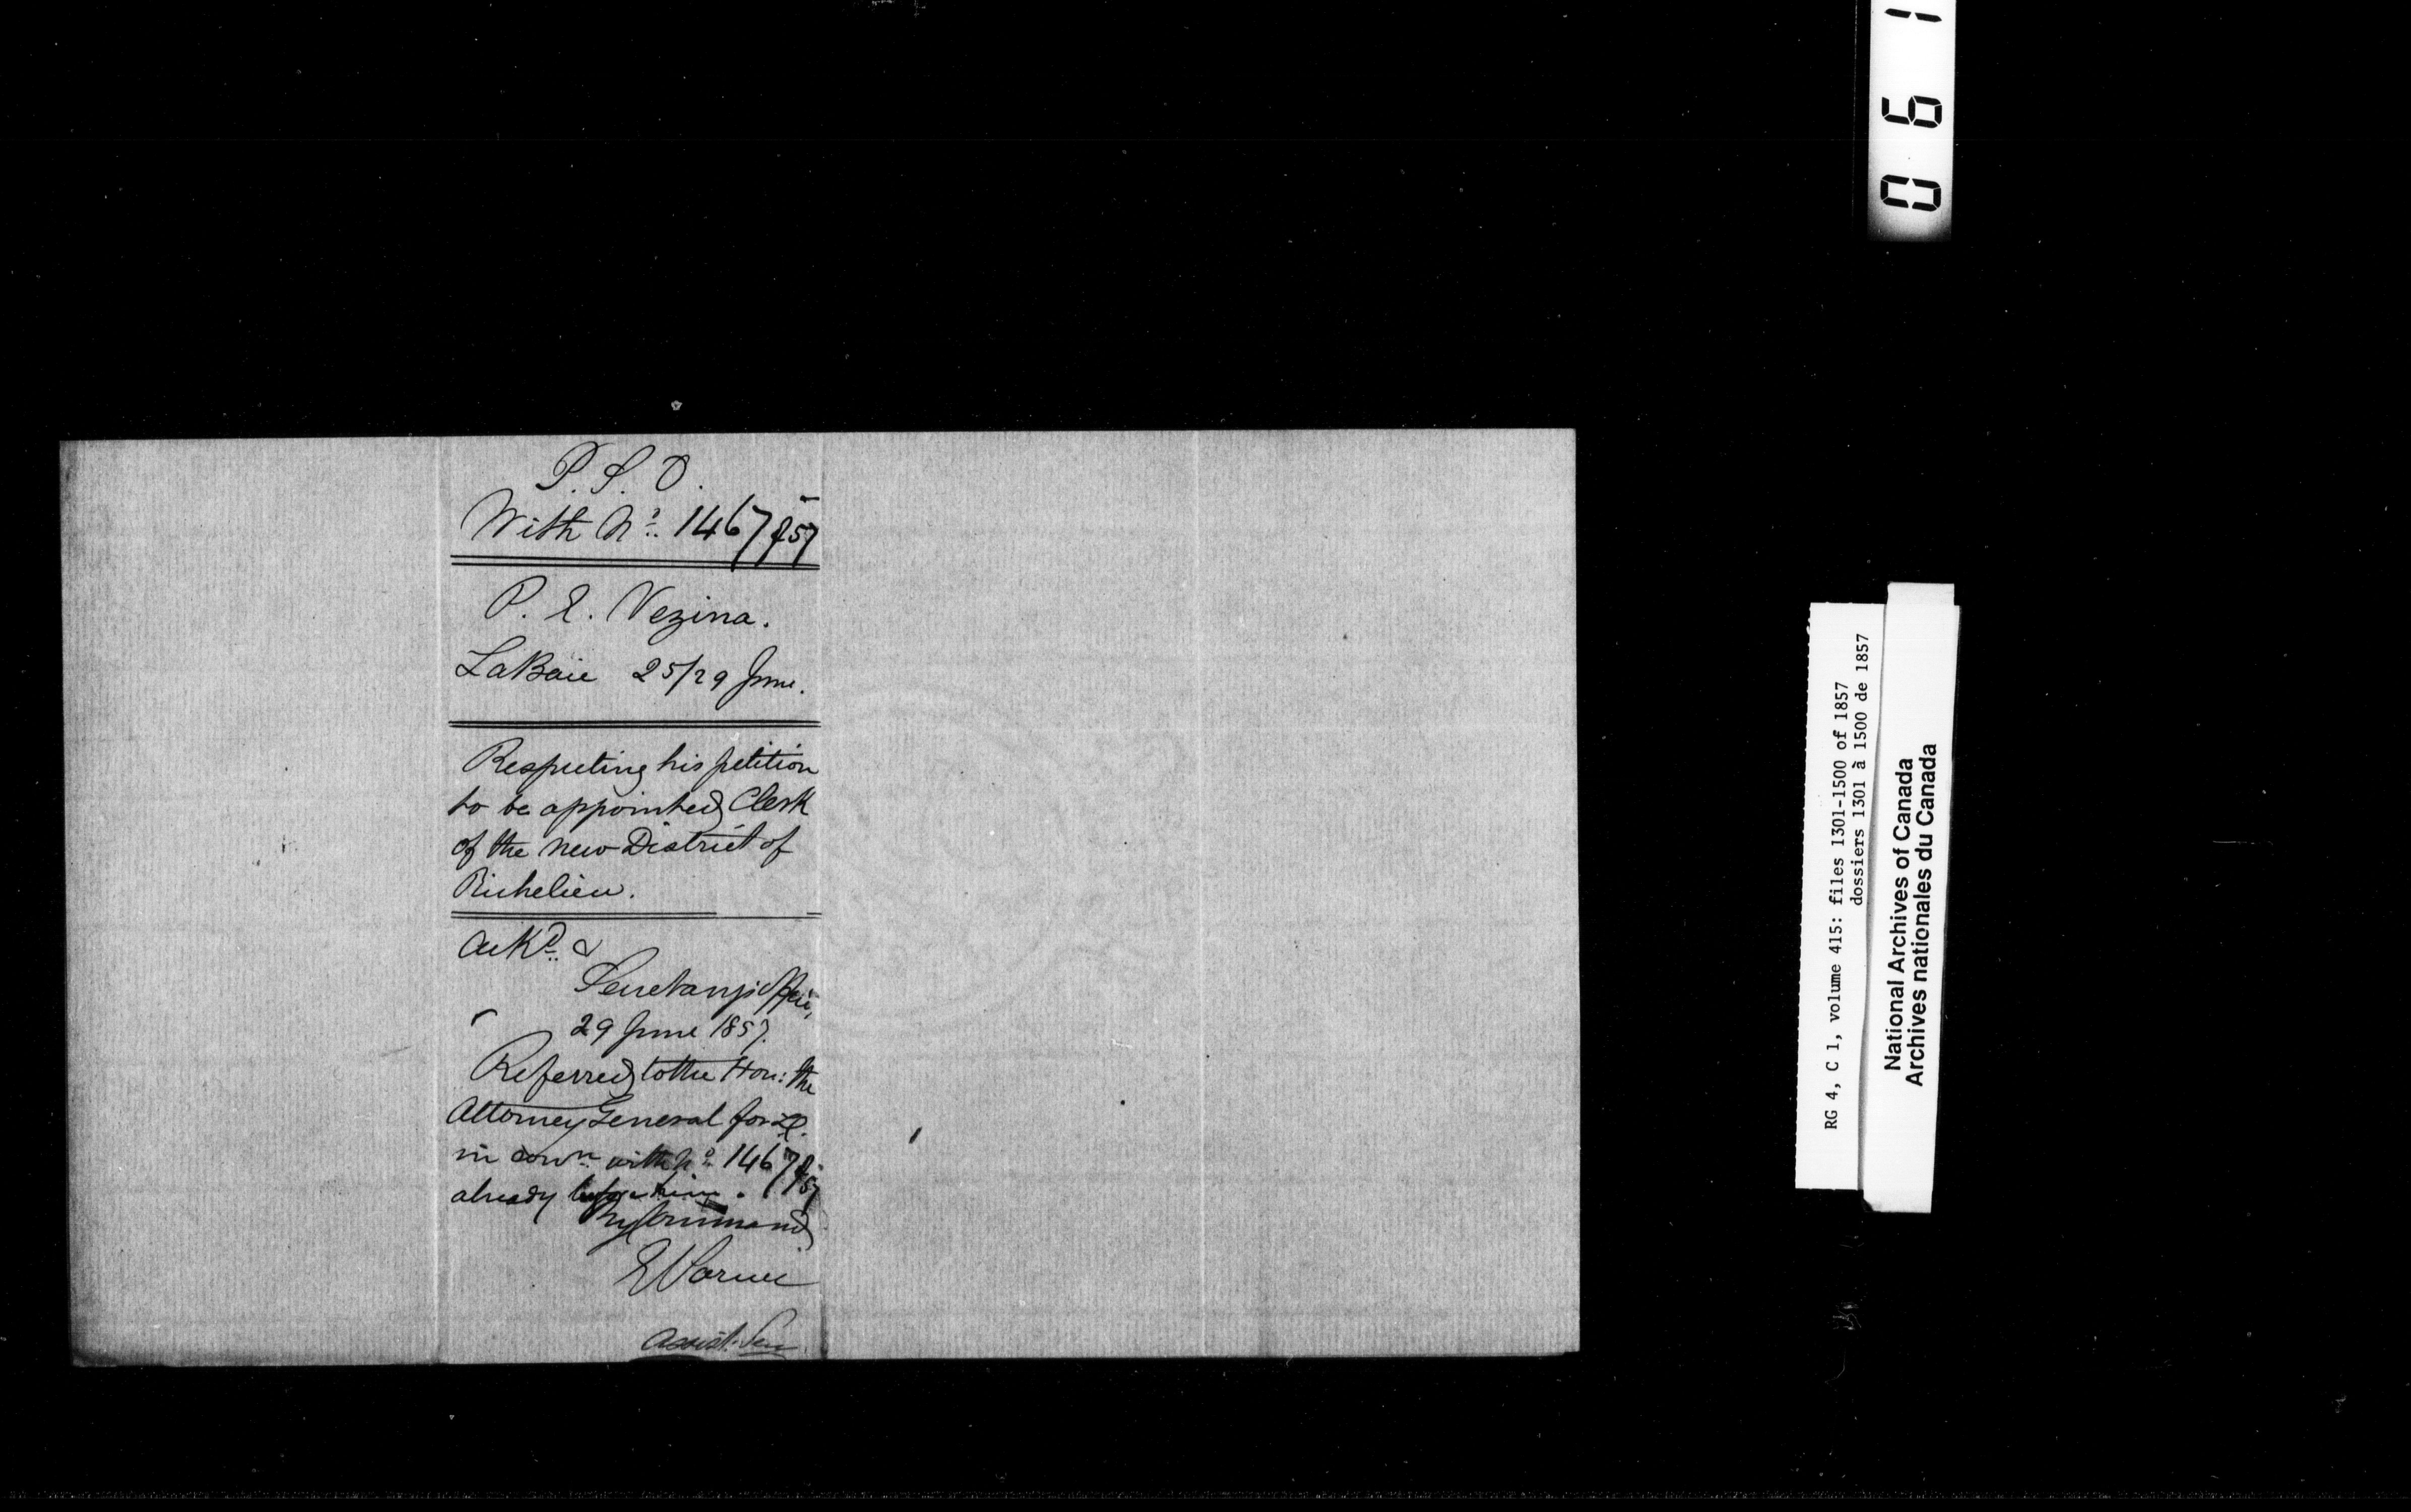 P. S. O.
With No. 1467/57
P. E. Vezina.
LaBaie 25/29 June.
Respecting his petition
to be appointed Clerk
of the new District of
Richelieu.
Ackd. &
Secretary's Office,
29 June 1857.
Referred to the Hon: the
Attorney General for
in conn. with No. 1467/57
already before him.
By Command
E Parent
Assist. Sec
0 6 1
RG 4, C 1, volume 415: files 1301-1500 of 1857
dossiers 1301 à 1500 de 1857
National Archives of Canada
Archives nationales du Canada